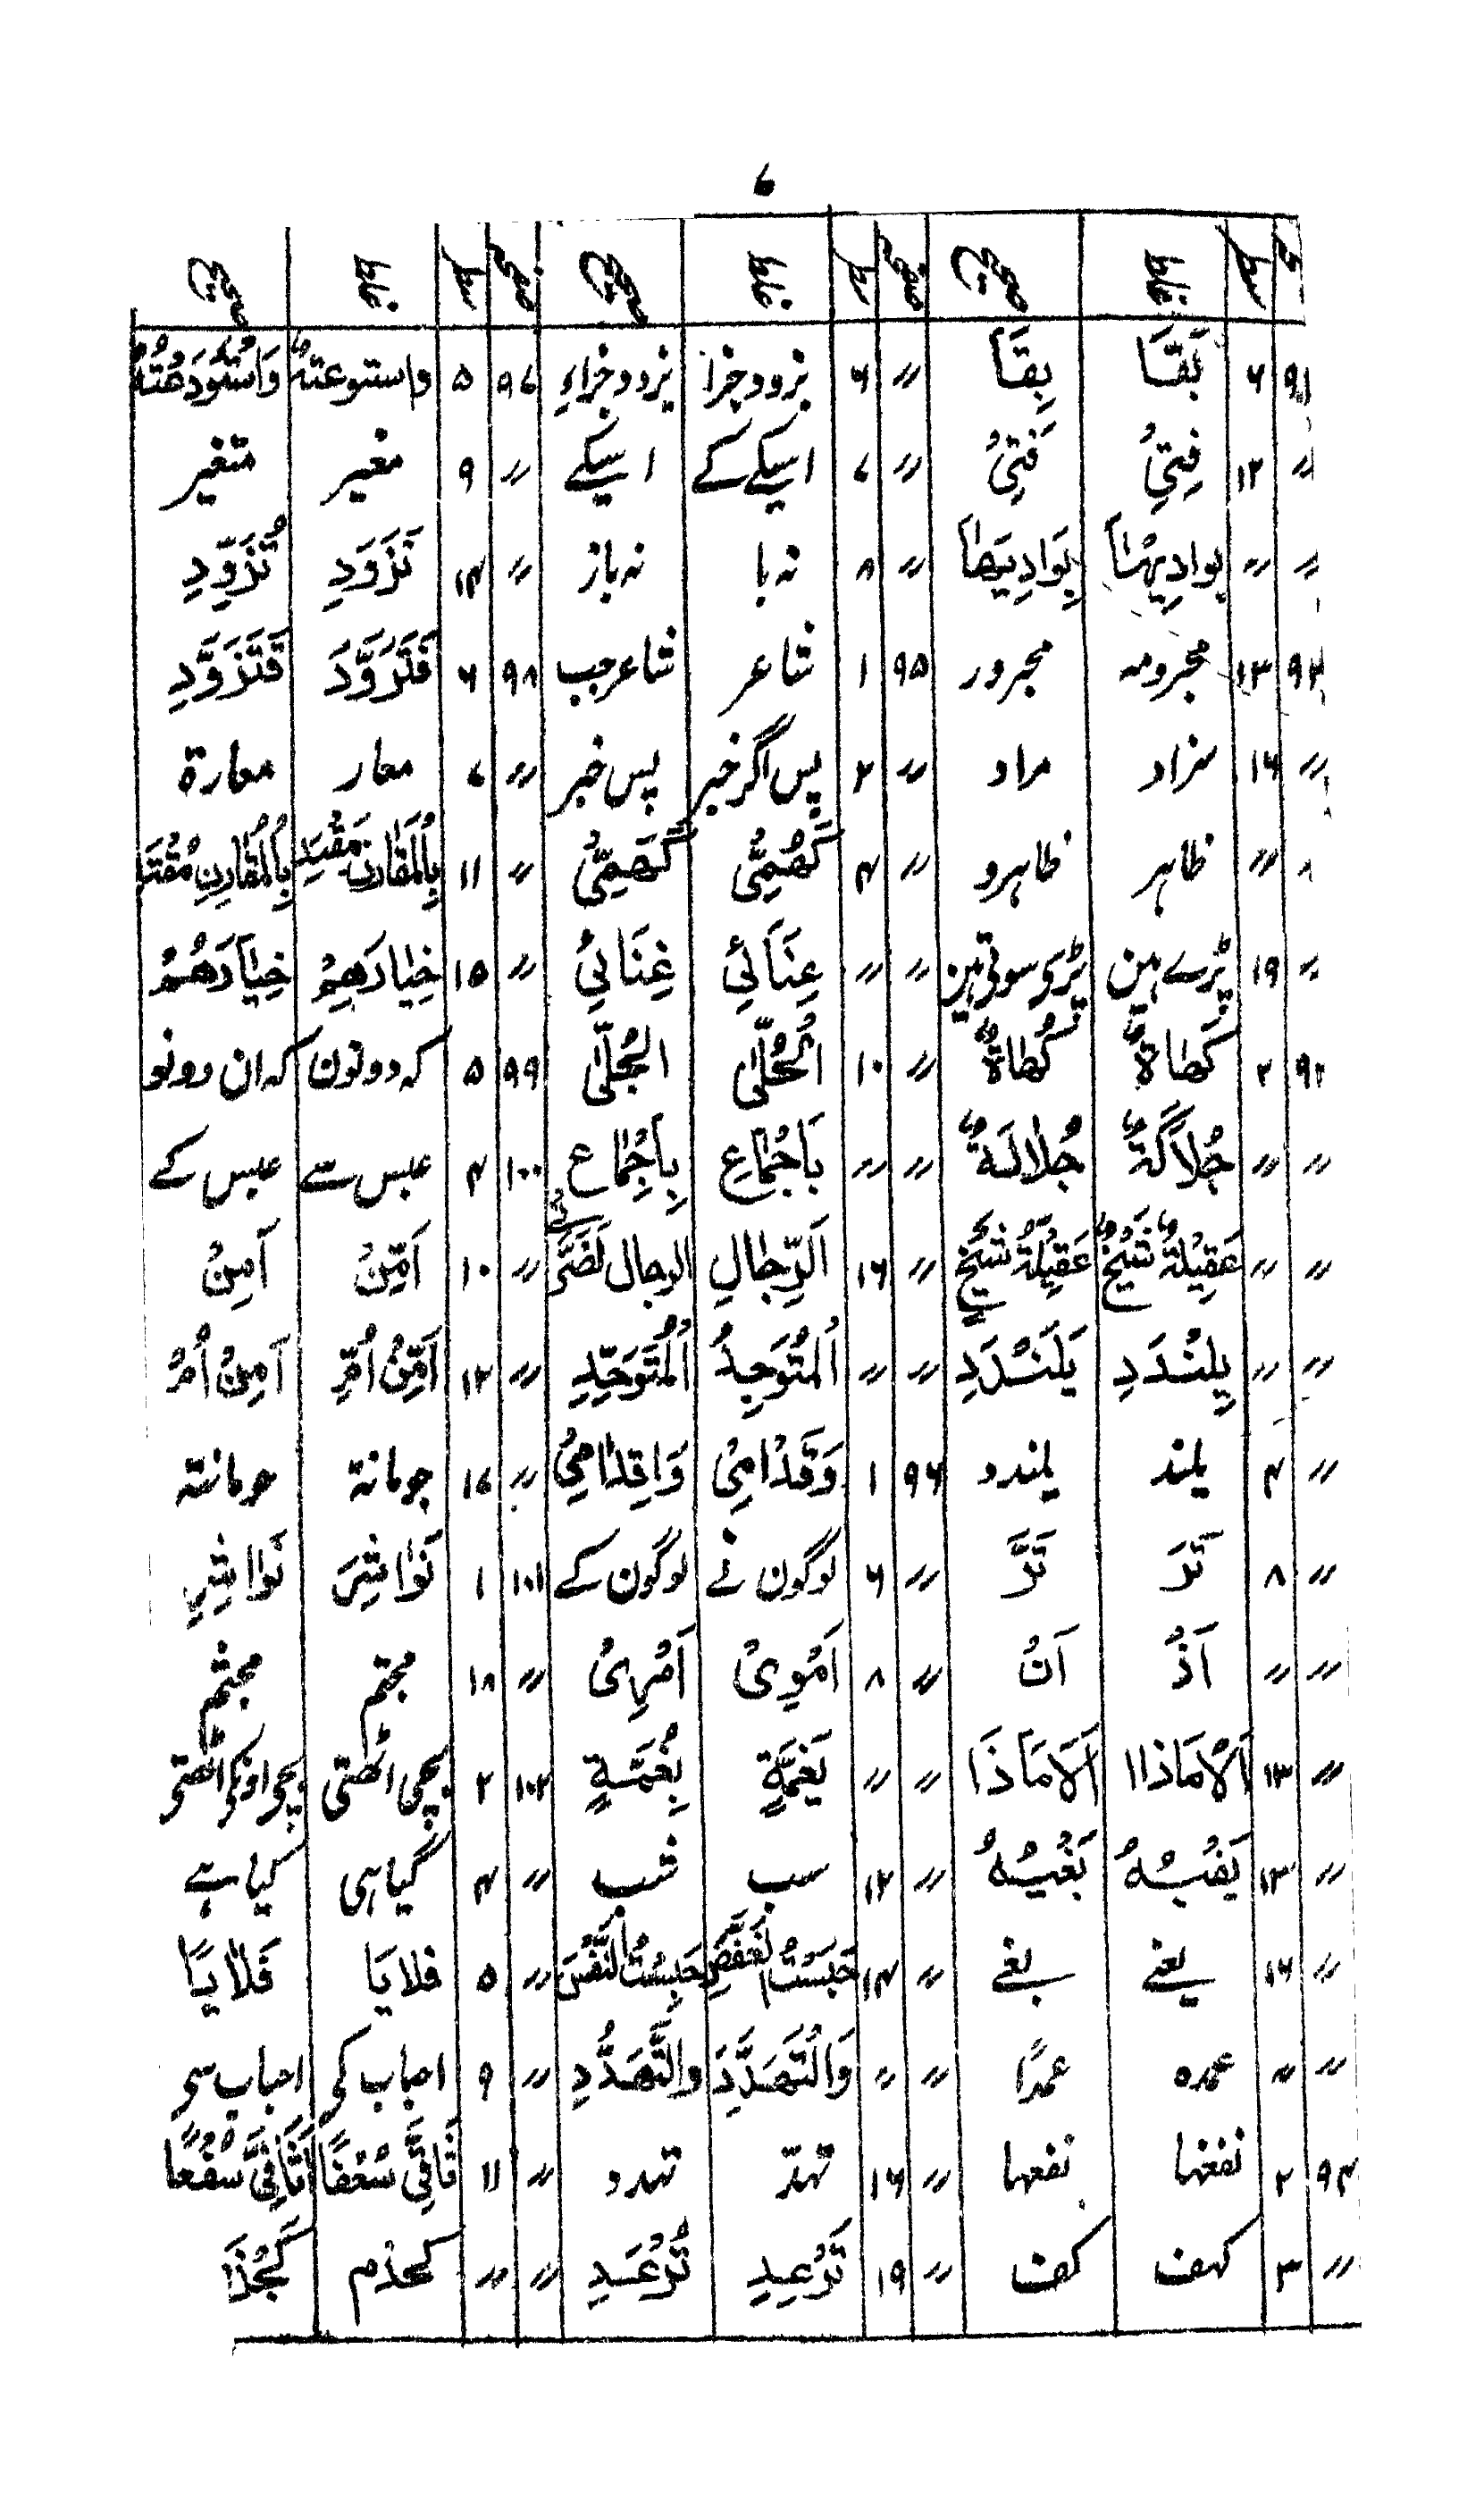 ۷
صفحہ سطر غلط صحیح صفحہ سطر غلط صحیح صفحہ سطر غلط صحیح
۹۱ ۶ بَقَّا بِقَّا 〃 ۶ بزود جزا بزود جزاءِ ۹۷ ۵ واستوعتہ وَاسْتَوْدَعْتُهُ
〃 ۱۲ فِتِیْ فَتِیْ 〃 ۷ اسیکے کے اسیکے 〃 ۹ مغیر متغیر
〃 〃 بوادیہا بِوَادِیهَا 〃 ۸ نہ با نہ باز 〃 ۱۴ تَزَوَدِ تُزَوِّدِ
۹۲ ۱۳ مجرومہ مجرور ۹۵ ۱ شاعر شاعر جب ۹۸ ۶ فَتَزَوَّدَ فَتَزَوَّدِ
〃 ۱۶ سزاد مراد 〃 ۲ پس اگر خبر پس خبر 〃 ۷ معار معارة
〃 ظاہر ظاہرو 〃 ۴ كَهُمِّیْ كَهَمِّیْ 〃 ۱۱ بِالْمُقَارِنِ
〃 ۱۹ پڑے ہین پڑی سوتی ہین 〃 〃 عِنَائِیْ غِنَائِیْ 〃 ۱۵ خِیَارَهِمْ خِیَارَهُمْ
۲ كَهَاةٌ كُهَاةٌ 〃 ۱۰ الْحُلّٰی الجُلّٰی ۹۹ ۵ کہ دونون کہ ان دونو
〃 〃 جُلَاكَةٌ جُلَالَةٌ 〃 〃 بَاَجْمَاعِ بِاَجْمَاعِ ۱۰۰ ۴ عبس سے عبس کے
〃 〃 عَقِیْلَةٌ شَیْخٌ عَقِیْلَةُ شَیْخٍ 〃 ۱۶ اَلرِّجَالِ الرجال 〃 ۱۰ اَمِّنْ اَمِنْ
〃 〃 یِلَنْدَدِ یَلَنْدَدِ 〃 〃 اَلْمُتَوَحِدُ اَلْمُتَوَحِّدِ 〃 ۱۲ اَمِّنْ اُمِّ اَمِنْ اُمِّ
〃 ۴ یلند یلندد ۹۶ ۱ وَقَدَامِیْ وَاِقْدَامِیْ 〃 ۱۷ جومانة حومانة
〃 ۸ تَرَ تَرَّ 〃 ۶ لوگون نے لوگون کے ۱۰۱ ۱ نَوَاشِرَ نَوَاشِرِ
〃 〃 اَذْ اَنْ 〃 ۸ اَمْوِیْ اَمْرِیْ 〃 ۱۸ مجتم مجثم
〃 ۱۳ اَلَامَاذاا اَلَامَاذَا 〃 〃 یَغُمَّةٍ بِغُمَّةٍ ۱۰۲ ۲ بچی اٹھتی
〃 ۱۳ 〃 ۱۲ سب قب 〃 ۴ گیا ہی گیا ہے
〃 ۱۶ یغے بغے 〃 ۱۴ حَبَسْتُ حَبَسْتُ النَّفْسَ 〃 ۵ فلایَا فَلَایًا
〃 〃 عمدہ عمدًا 〃 〃 وَالتَّهَدَّدَ وَالتَّهَدُّدِ 〃 ۹ احباب کی احباب سی
۹۴ ۲ نفغہا نفعہا 〃 ۱۶ تہدّ تہدد 〃 ۱۱ ثَافِیَّ سُعْفًا اَثَافِیَّ سُفْعًا
〃 ۳ کہف کف 〃 ۱۹ تَرْعِدِ تُرْعَدِ 〃 〃 کحذم كَجِذْ